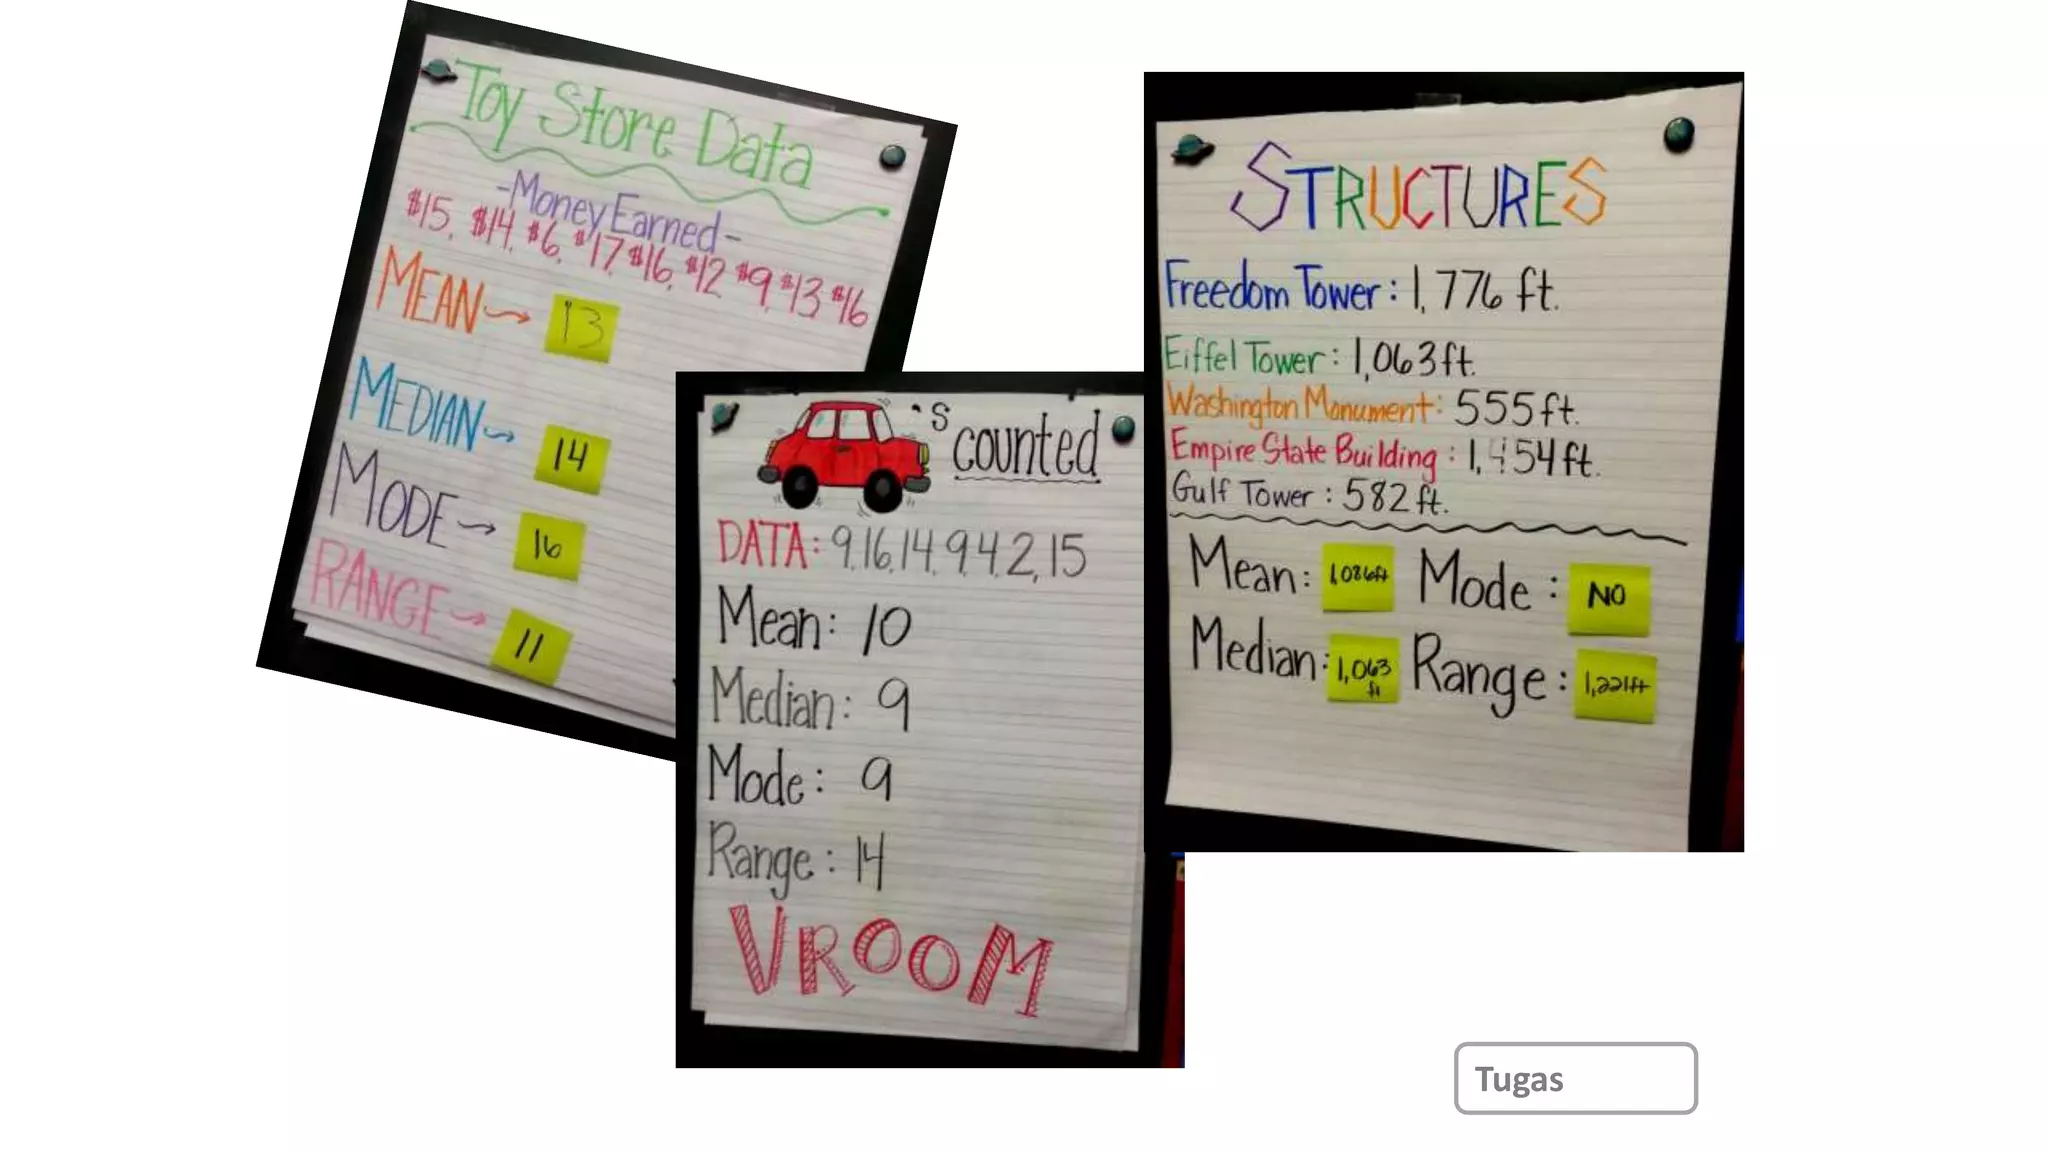 Toy Store Data
-Money Earned-
$15, $14, $6, $17, $16, $12, $9, $13, $16
MEAN→ 13
MEDIAN→ 14
MODE→ 16
RANGE→ 11
's counted
DATA: 9, 16, 14, 9, 4, 2, 15
Mean: 10
Median: 9
Mode: 9
Range: 14
VROOM
STRUCTURES
Freedom Tower: 1,776 ft.
Eiffel Tower: 1,063 ft.
Washington Monument: 555 ft.
Empire State Building: 1,454 ft.
Gulf Tower: 582 ft.
Mean: 1,086ft Mode: NO
Median: 1,063 ft Range: 1,221ft
Tugas